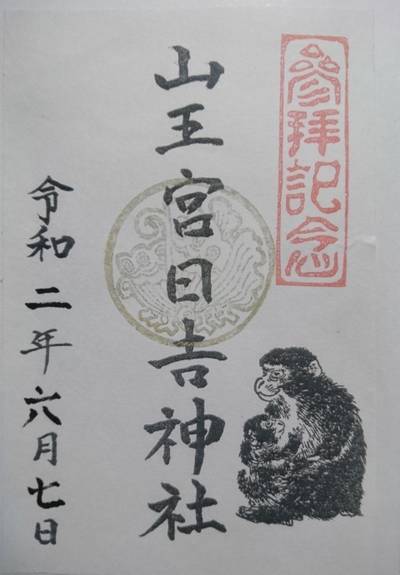 參拜記念
山王宮日吉神社
令和二年六月七日